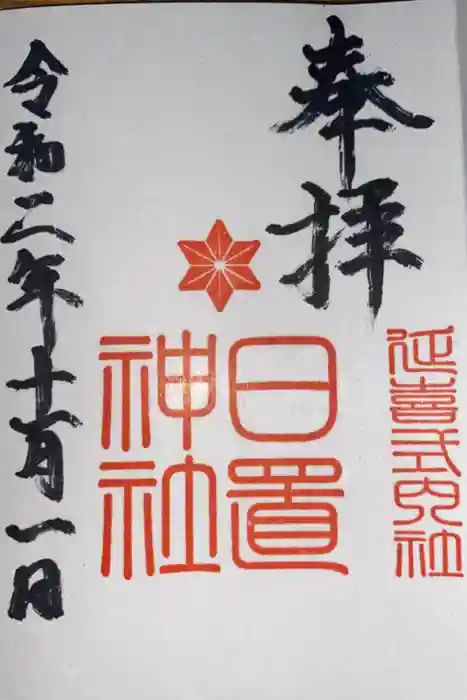 奉拝
延喜式内社
日置
神社
令和二年十一月一日